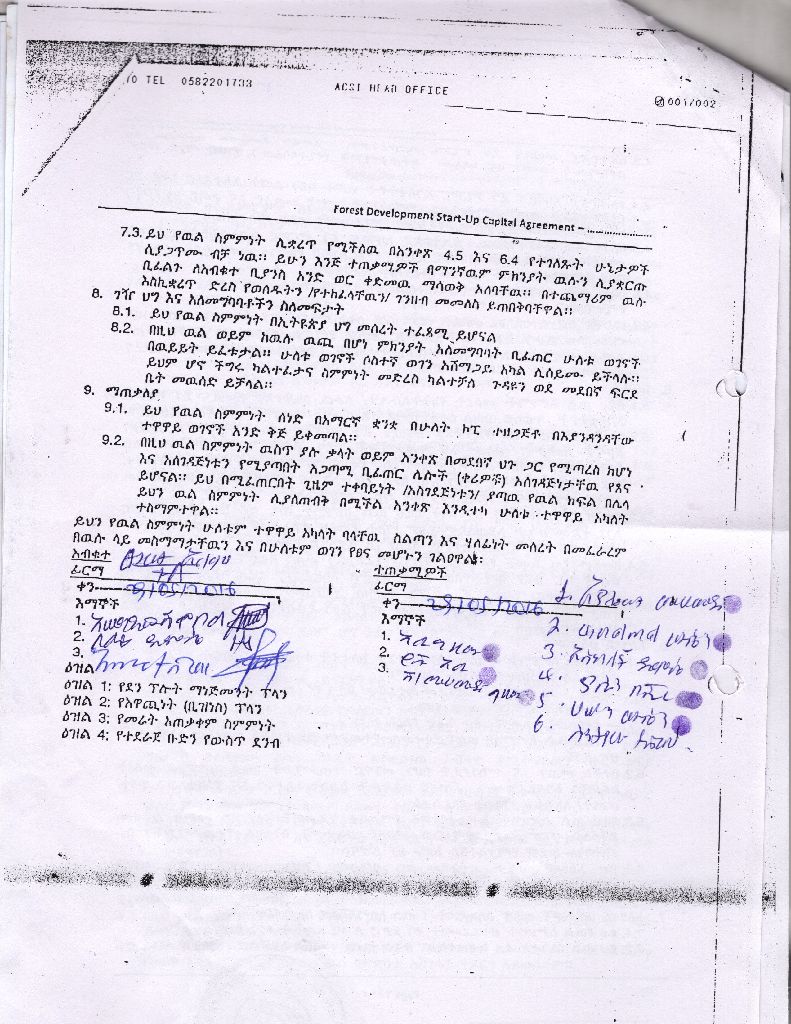 TEL 0582201733 ACSI HEAD OFFICE 001/002
Forest Development Start-Up Capital Agreement – ....................
7.3. ይህ የዉል ስምምነት ሊቋረጥ የሚችለዉ በአንቀጽ 4.5 እና 6.4 የተገለጹት ሁኔታዎች
ሲያጋጥሙ ብቻ ነዉ። ይሁን እንጅ ተጠቃሚዎች በማንኛዉም ምክንያት ዉሉን ሊያቋርጡ
ቢፈልጉ ለአብቁተ ቢያንስ አንድ ወር ቀድመዉ ማሳወቅ አለባቸዉ። በተጨማሪም ዉሉ
እስኪቋረጥ ድረስ የወሰዱትን /የተከፈላቸዉን/ ገንዘብ መመለስ ይጠበቅባቸዋል።
8. ገዥ ህግ እና አለመግባባቶችን ስለመፍታት
8.1. ይህ የዉል ስምምነት በኢትዮጵያ ህግ መሰረት ተፈጻሚ ይሆናል
8.2. በዚህ ዉል ወይም ከዉሉ ዉጪ በሆነ ምክንያት አለመግባባት ቢፈጠር ሁለቱ ወገኖች
በዉይይት ይፈቱታል። ሁለቱ ወገኖች ሶስተኛ ወገን አሸማጋይ አካል ሊሰይሙ ይችላሉ።
ይህም ሆኖ ችግሩ ካልተፈታና ስምምነት መድረስ ካልተቻለ ጉዳዩን ወደ መደበኛ ፍርድ
ቤት መዉሰድ ይቻላል።
9. ማጠቃለያ
9.1. ይህ የዉል ስምምነት ሰነድ በአማርኛ ቋንቋ በሁለት ኮፒ ተዘጋጅቶ በእያንዳንዳቸው
ተዋዋይ ወገኖች አንድ ቅጅ ይቀመጣል።
9.2. በዚህ ዉል ስምምነት ዉስጥ ያሉ ቃላት ወይም አንቀጽ በመደበኛ ህጉ ጋር የሚጣረስ ከሆነ
እና አስገዳጅነቱን የሚያጣበት አጋጣሚ ቢፈጠር ሌሎች (ቀሪዎቹ) አስገዳጅነታቸዉ የጸና
ይሆናል። ይህ በሚፈጠርበት ጊዜም ተቀባይነት /አስገዳጅነቱን/ ያጣዉ የዉል ክፍል በሌላ
ይህን ዉል ስምምነት ሊያስጠብቅ በሚችል አንቀጽ እንዲተካ ሁለቱ ተዋዋይ አካላት
ተስማምተዋል።
ይህን የዉል ስምምነት ሁለቱም ተዋዋይ አካላት ባላቸዉ ስልጣን እና ሃላፊነት መሰረት በመፈራረም
በዉሉ ላይ መስማማታቸዉን እና በሁለቱም ወገን የፀና መሆኑን ገልፀዋል፡
አብቁተ
ፊርማ
ቀን 29/05/2016
እማኞች
1.
2.
3.
ዕዝል
ዕዝል 1: የደን ፕሎት ማነጅመንት ፕላን
ዕዝል 2: የአዋጪነት (ቢዝነስ) ፕላን
ዕዝል 3: የመሬት አጠቃቀም ስምምነት
ዕዝል 4: የተደራጀ ቡድን የውስጥ ደንብ
ተጠቃሚዎች
ፊርማ
ቀን 29/05/2016
እማኞች
1.
2.
3.
1.
2.
3.
4.
5.
6.